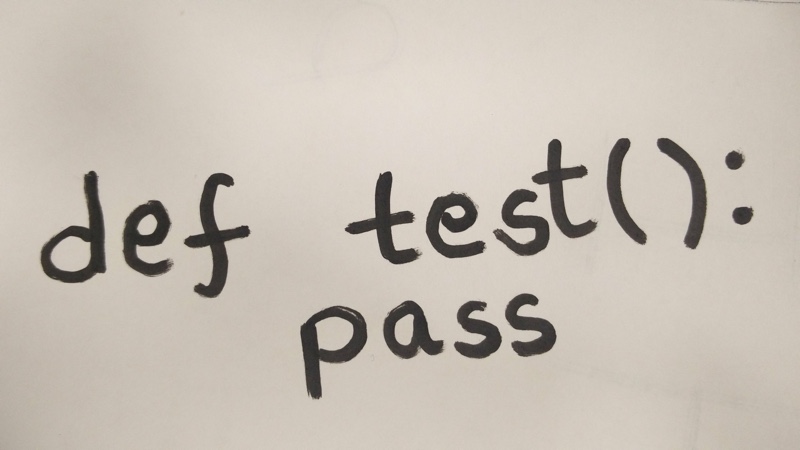 def test():
    pass